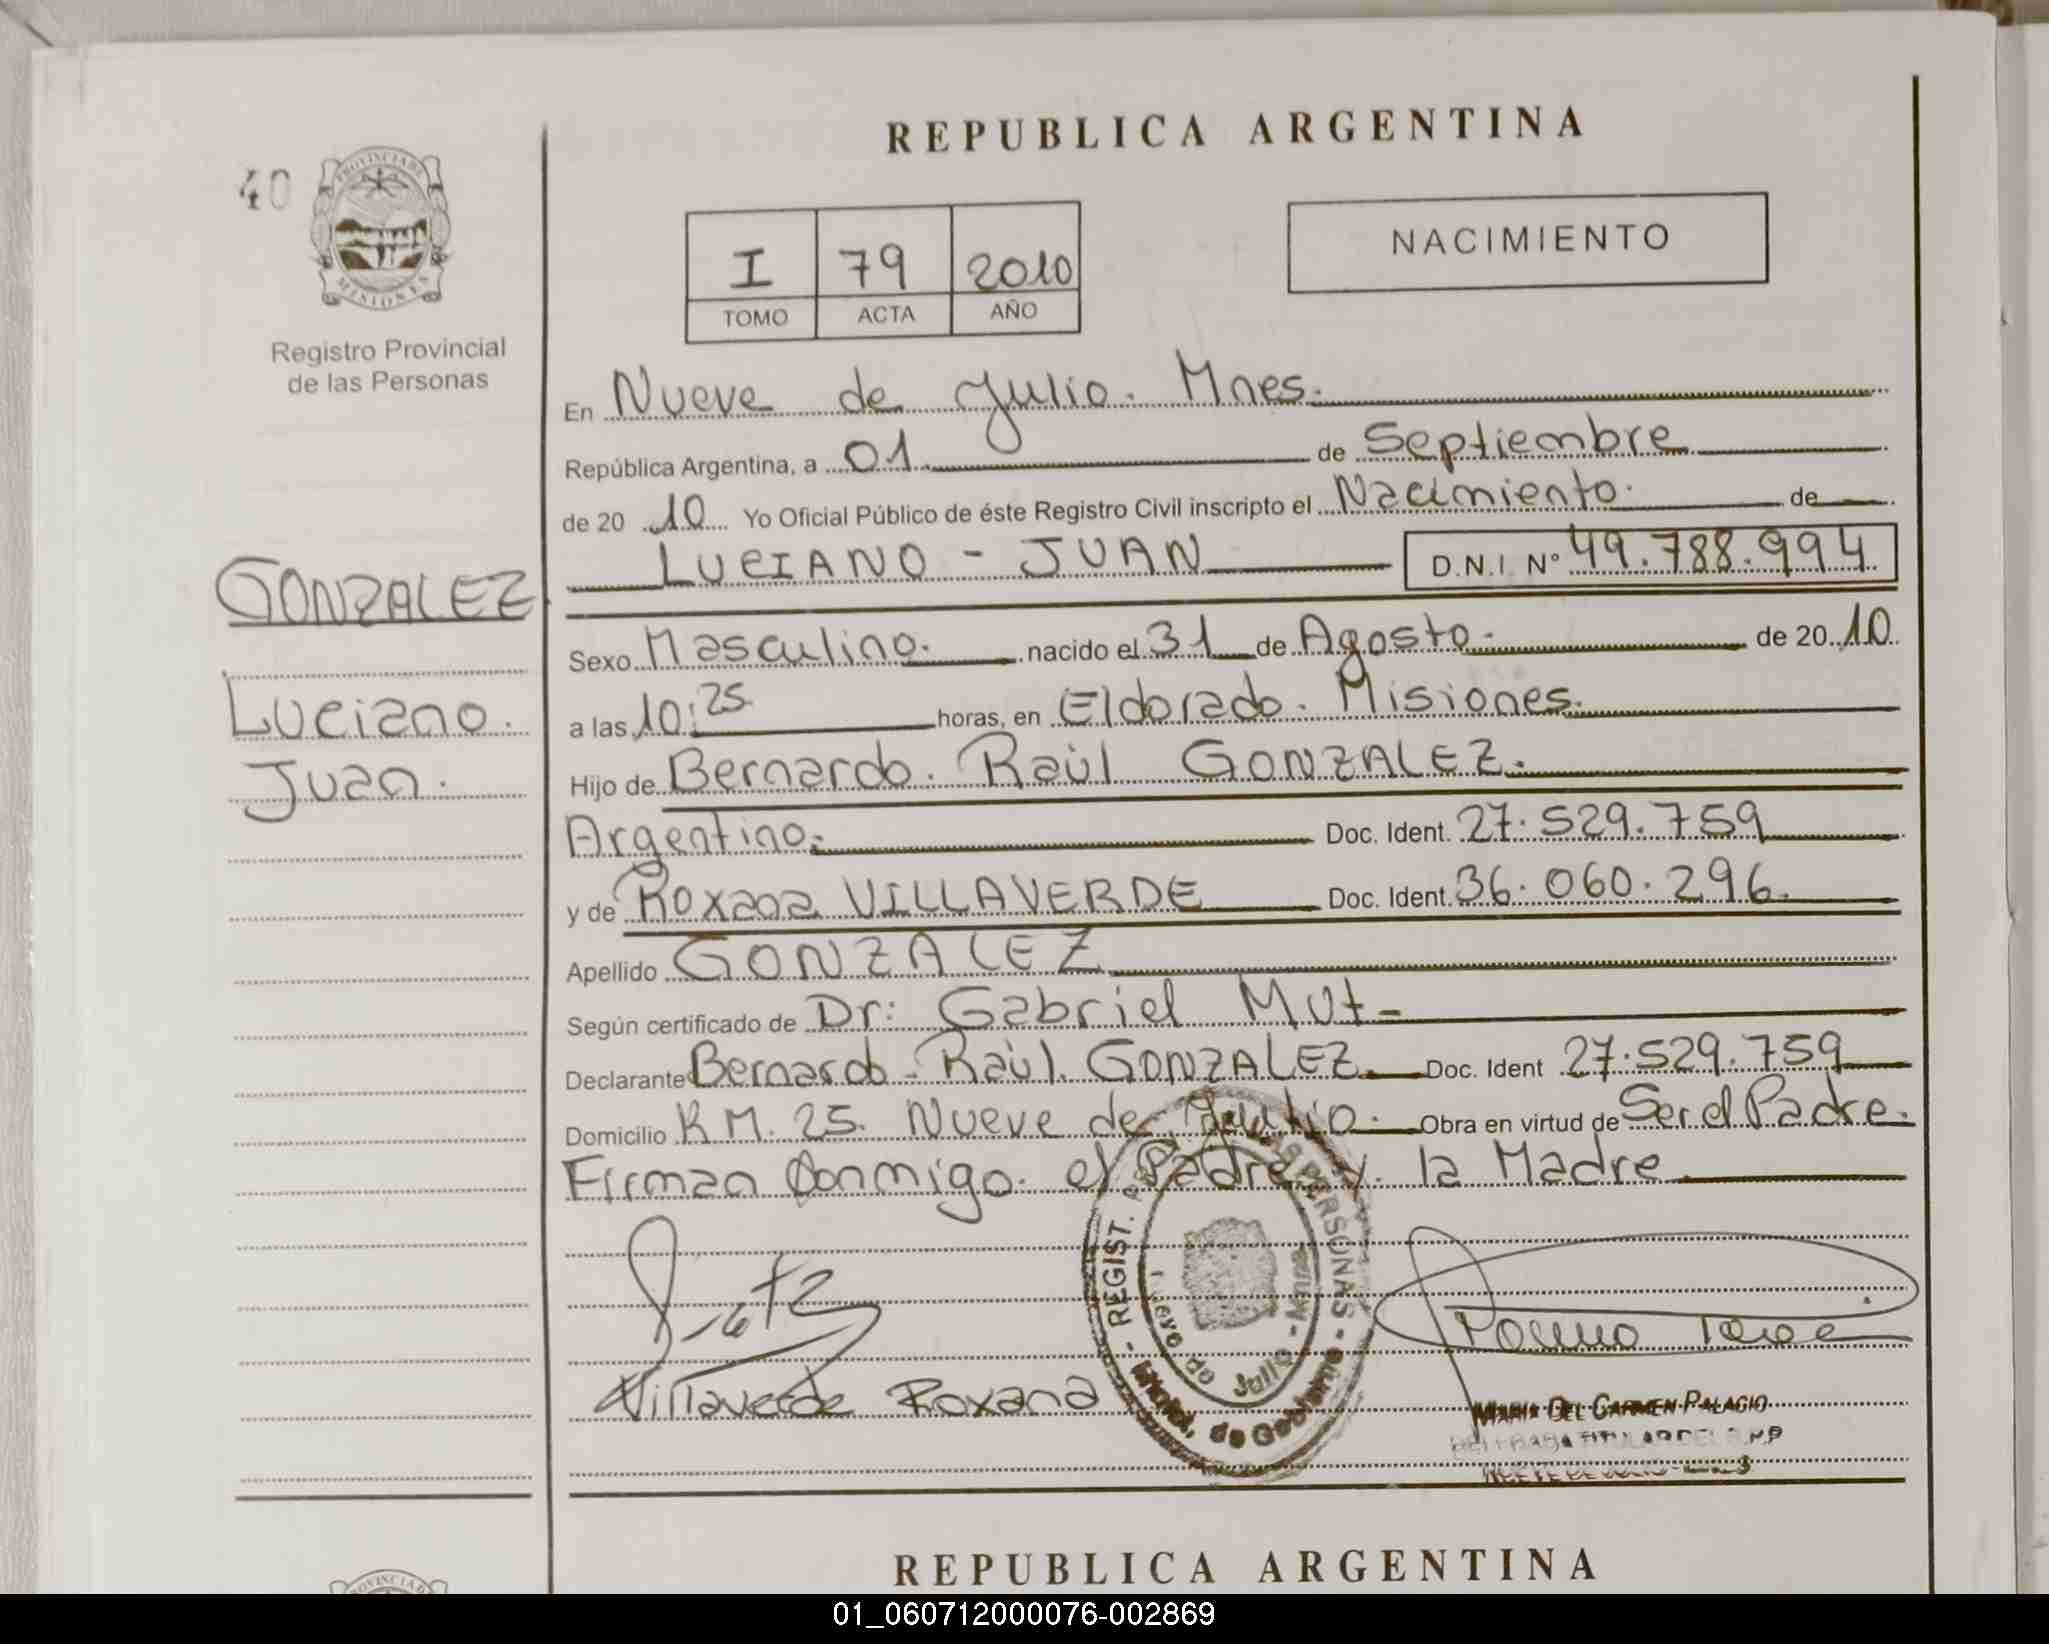 REPUBLICA ARGENTINA
40
PROVINCIA DE
MISIONES
Registro Provincial
de las Personas
I 79 2010
TOMO ACTA AÑO
NACIMIENTO
En Nueve de Julio. Mnes.
República Argentina, a 01 de Septiembre
de 20 10 Yo Oficial Público de éste Registro Civil inscripto el Nacimiento. de
LUCIANO - JUAN D.N.I. Nº 49.788.994
GONZALEZ
Luciano.
Juan.
Sexo Masculino. nacido el 31 de Agosto. de 20 10
a las 10:25 horas, en Eldorado. Misiones.
Hijo de Bernardo. Raúl GONZALEZ.
Argentino. Doc. Ident. 27.529.759
y de Roxana VILLAVERDE Doc. Ident. 36.060.296.
Apellido GONZALEZ
Según certificado de Dr: Gabriel Mut-
Declarante Bernardo. Raúl. GONZALEZ. Doc. Ident 27.529.759
Domicilio KM. 25. Nueve de Julio. Obra en virtud de Ser el Padre.
Firman Conmigo. el Padre y. la Madre
Villaverde Roxana
REGIST. PERSONAS
Nueve de Julio - Mnes
de Gobierno
MARIA DEL CARMEN PALACIO
REPUBLICA ARGENTINA
01_060712000076-002869